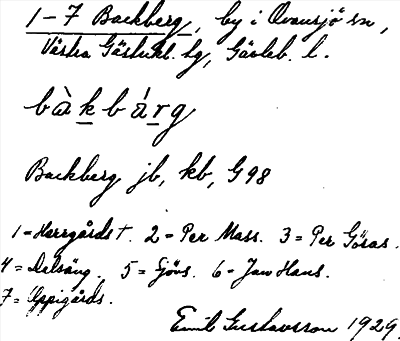 1–7 Backberg, by i Ovansjö sn,
Västra Gästrikl. hg, Gävleb. l.
bàkbárg
Backberg jb, kb, G98
1 = Herrgårds†. 2 = Per Mass. 3 = Per Gösas.
4 = Delsäng. 5 = Sjövs. 6 = Jan Hans.
7 = Uppigårds.
Emil Gustavsson 1929.